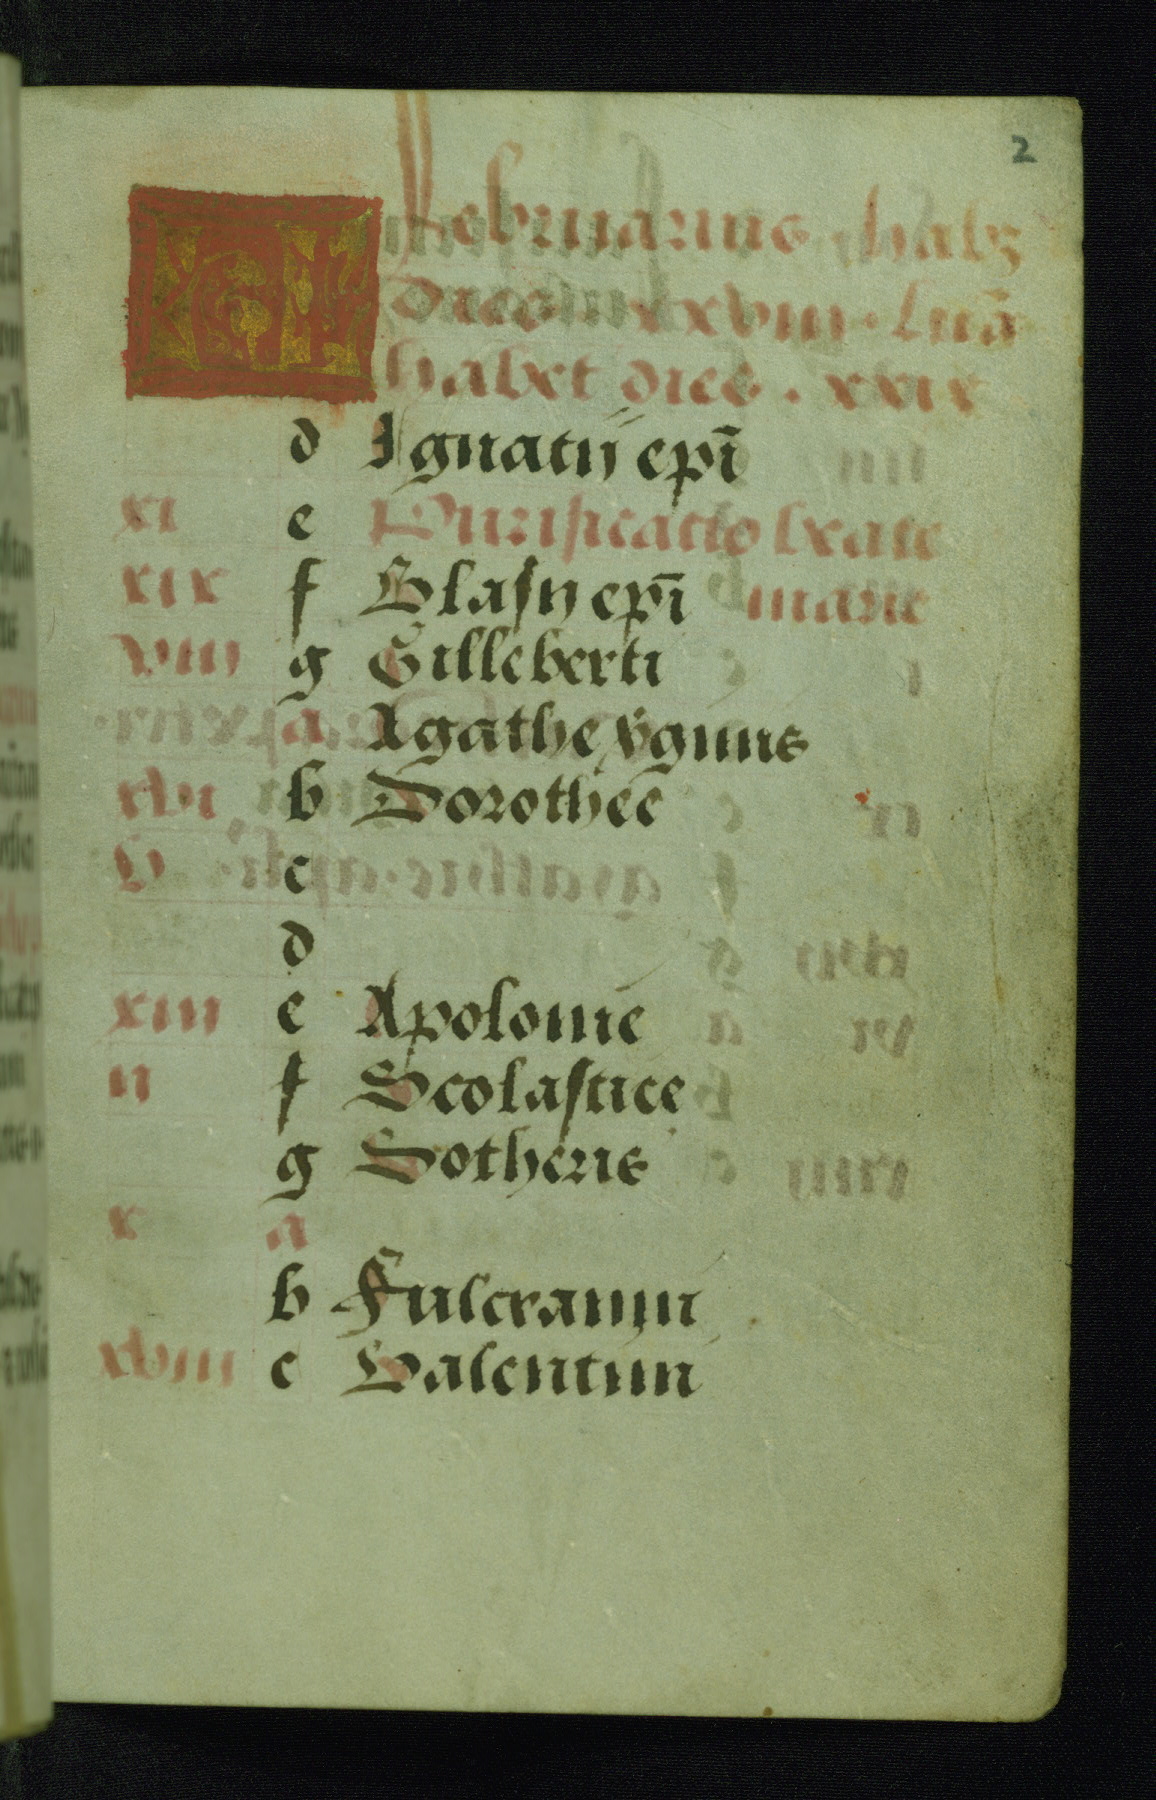 2
KL februarius habz
dies xxviii. Luā
habet dies. xxix
d Ignatij epī
xi e Purificatio beate
xix f Blasij epī marie
viii g Gilleberti
a Agathe v̄ginis
xvi b Dorothee
v c
d
xiii e Apolonie
ii f Scolastice
g Sotheris
x a
b Fulcranni
xviii c Valentini